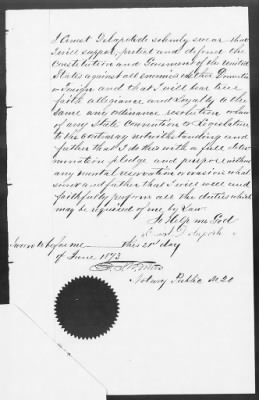 I Ernest Delaporte do solemnly swear that
I will support, protect and defend the
Constitution and Government of the United
States against all enemies whether Domestic
or Foreign and that I will bear true
faith allegiance and Loyalty to the
same any ordinance resolution or law
of any State Convention or Legislature
to the contrary notwithstanding and
further that I do this with a full deter-
mination pledge and purpose without
any mental reservation or evasion what
soever and further that I will well and
faithfully perform all the duties which
may be required of me by Law.
So Help me God
Sworn to before me this day
of June 1873
Notary Public